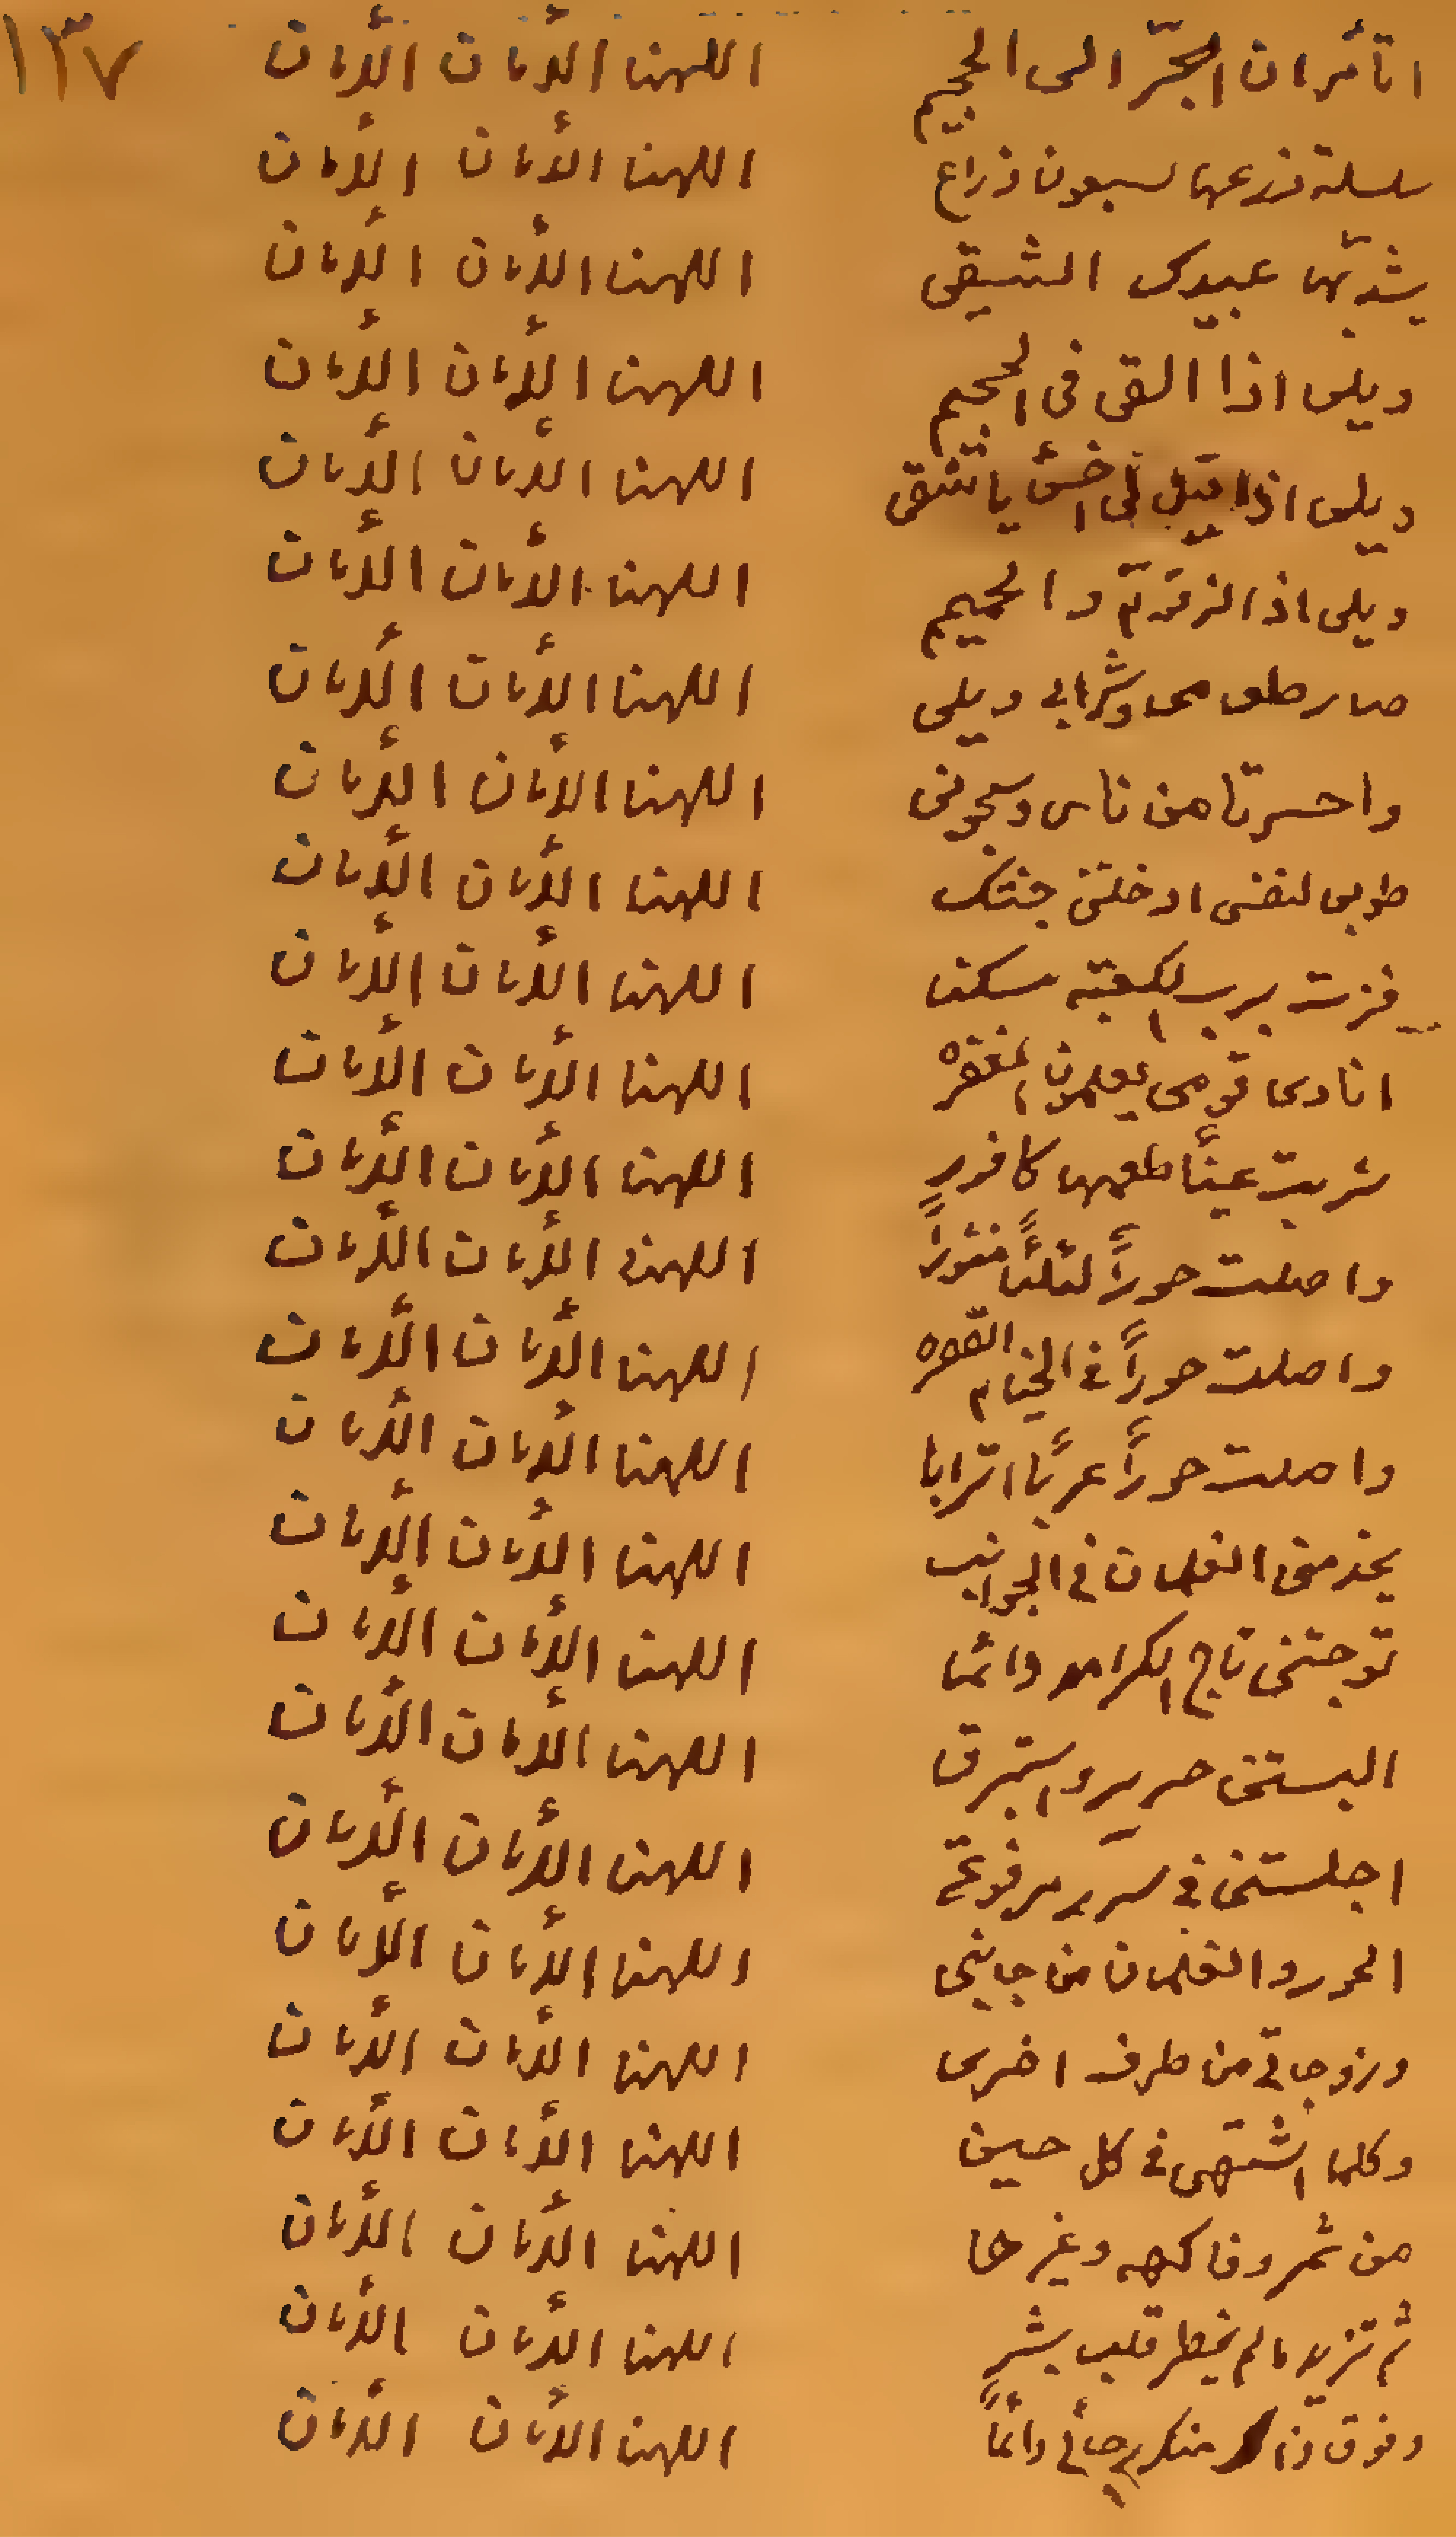 ١٣٧
اتأمر ان اجرّ الى الجحيم اللهنا الأمان الأمان
سلسلة ذرعها سبعون ذراع اللهنا الأمان الأمان
يشد بها عبيدك الشقى اللهنا الأمان الأمان
ويلى اذا القى فى الجحيم اللهنا الأمان الأمان
ويلى اذا قيل لى اخسئ يا شقى اللهنا الأمان الأمان
ويلى اذا الزقوّم والحميم اللهنا الأمان الأمان
صار طعامى وشرابى ويلى اللهنا الأمان الأمان
واحسرتا من ناس وسجونى اللهنا الأمان الأمان
طوبى لنفسى ادخلتنى جنتك اللهنا الأمان الأمان
فزت برب الكعبة مسكنا اللهنا الأمان الأمان
انادى قومى يعلمون المغفره اللهنا الأمان الأمان
شربت عيناً طعمها كافور اللهنا الأمان الأمان
واصلت حوراً لئلئاً منثوراً اللهنا الأمان الأمان
واصلت حوراً فى الخيام اللهنا الأمان الأمان
واصلت حوراً عرباً اترابا اللهنا الأمان الأمان
يخدمنى الغلمان فى الجوانب اللهنا الأمان الأمان
توجتنى تاج الكرامه دائما اللهنا الأمان الأمان
البستنى حرير واستبرق اللهنا الأمان الأمان
اجلستنى فى سرير مرفوعة اللهنا الأمان الأمان
الحور والغلمان من جانبى اللهنا الأمان الأمان
وزوجاتى من طرف اخرى اللهنا الأمان الأمان
وكلما اشتهى فى كل حين اللهنا الأمان الأمان
من ثمر وفاكهه وغيرها اللهنا الأمان الأمان
ثم تزيد مالم يخطر قلب بشر اللهنا الأمان الأمان
وفوق ذا منك رجائى دائماً اللهنا الأمان الأمان